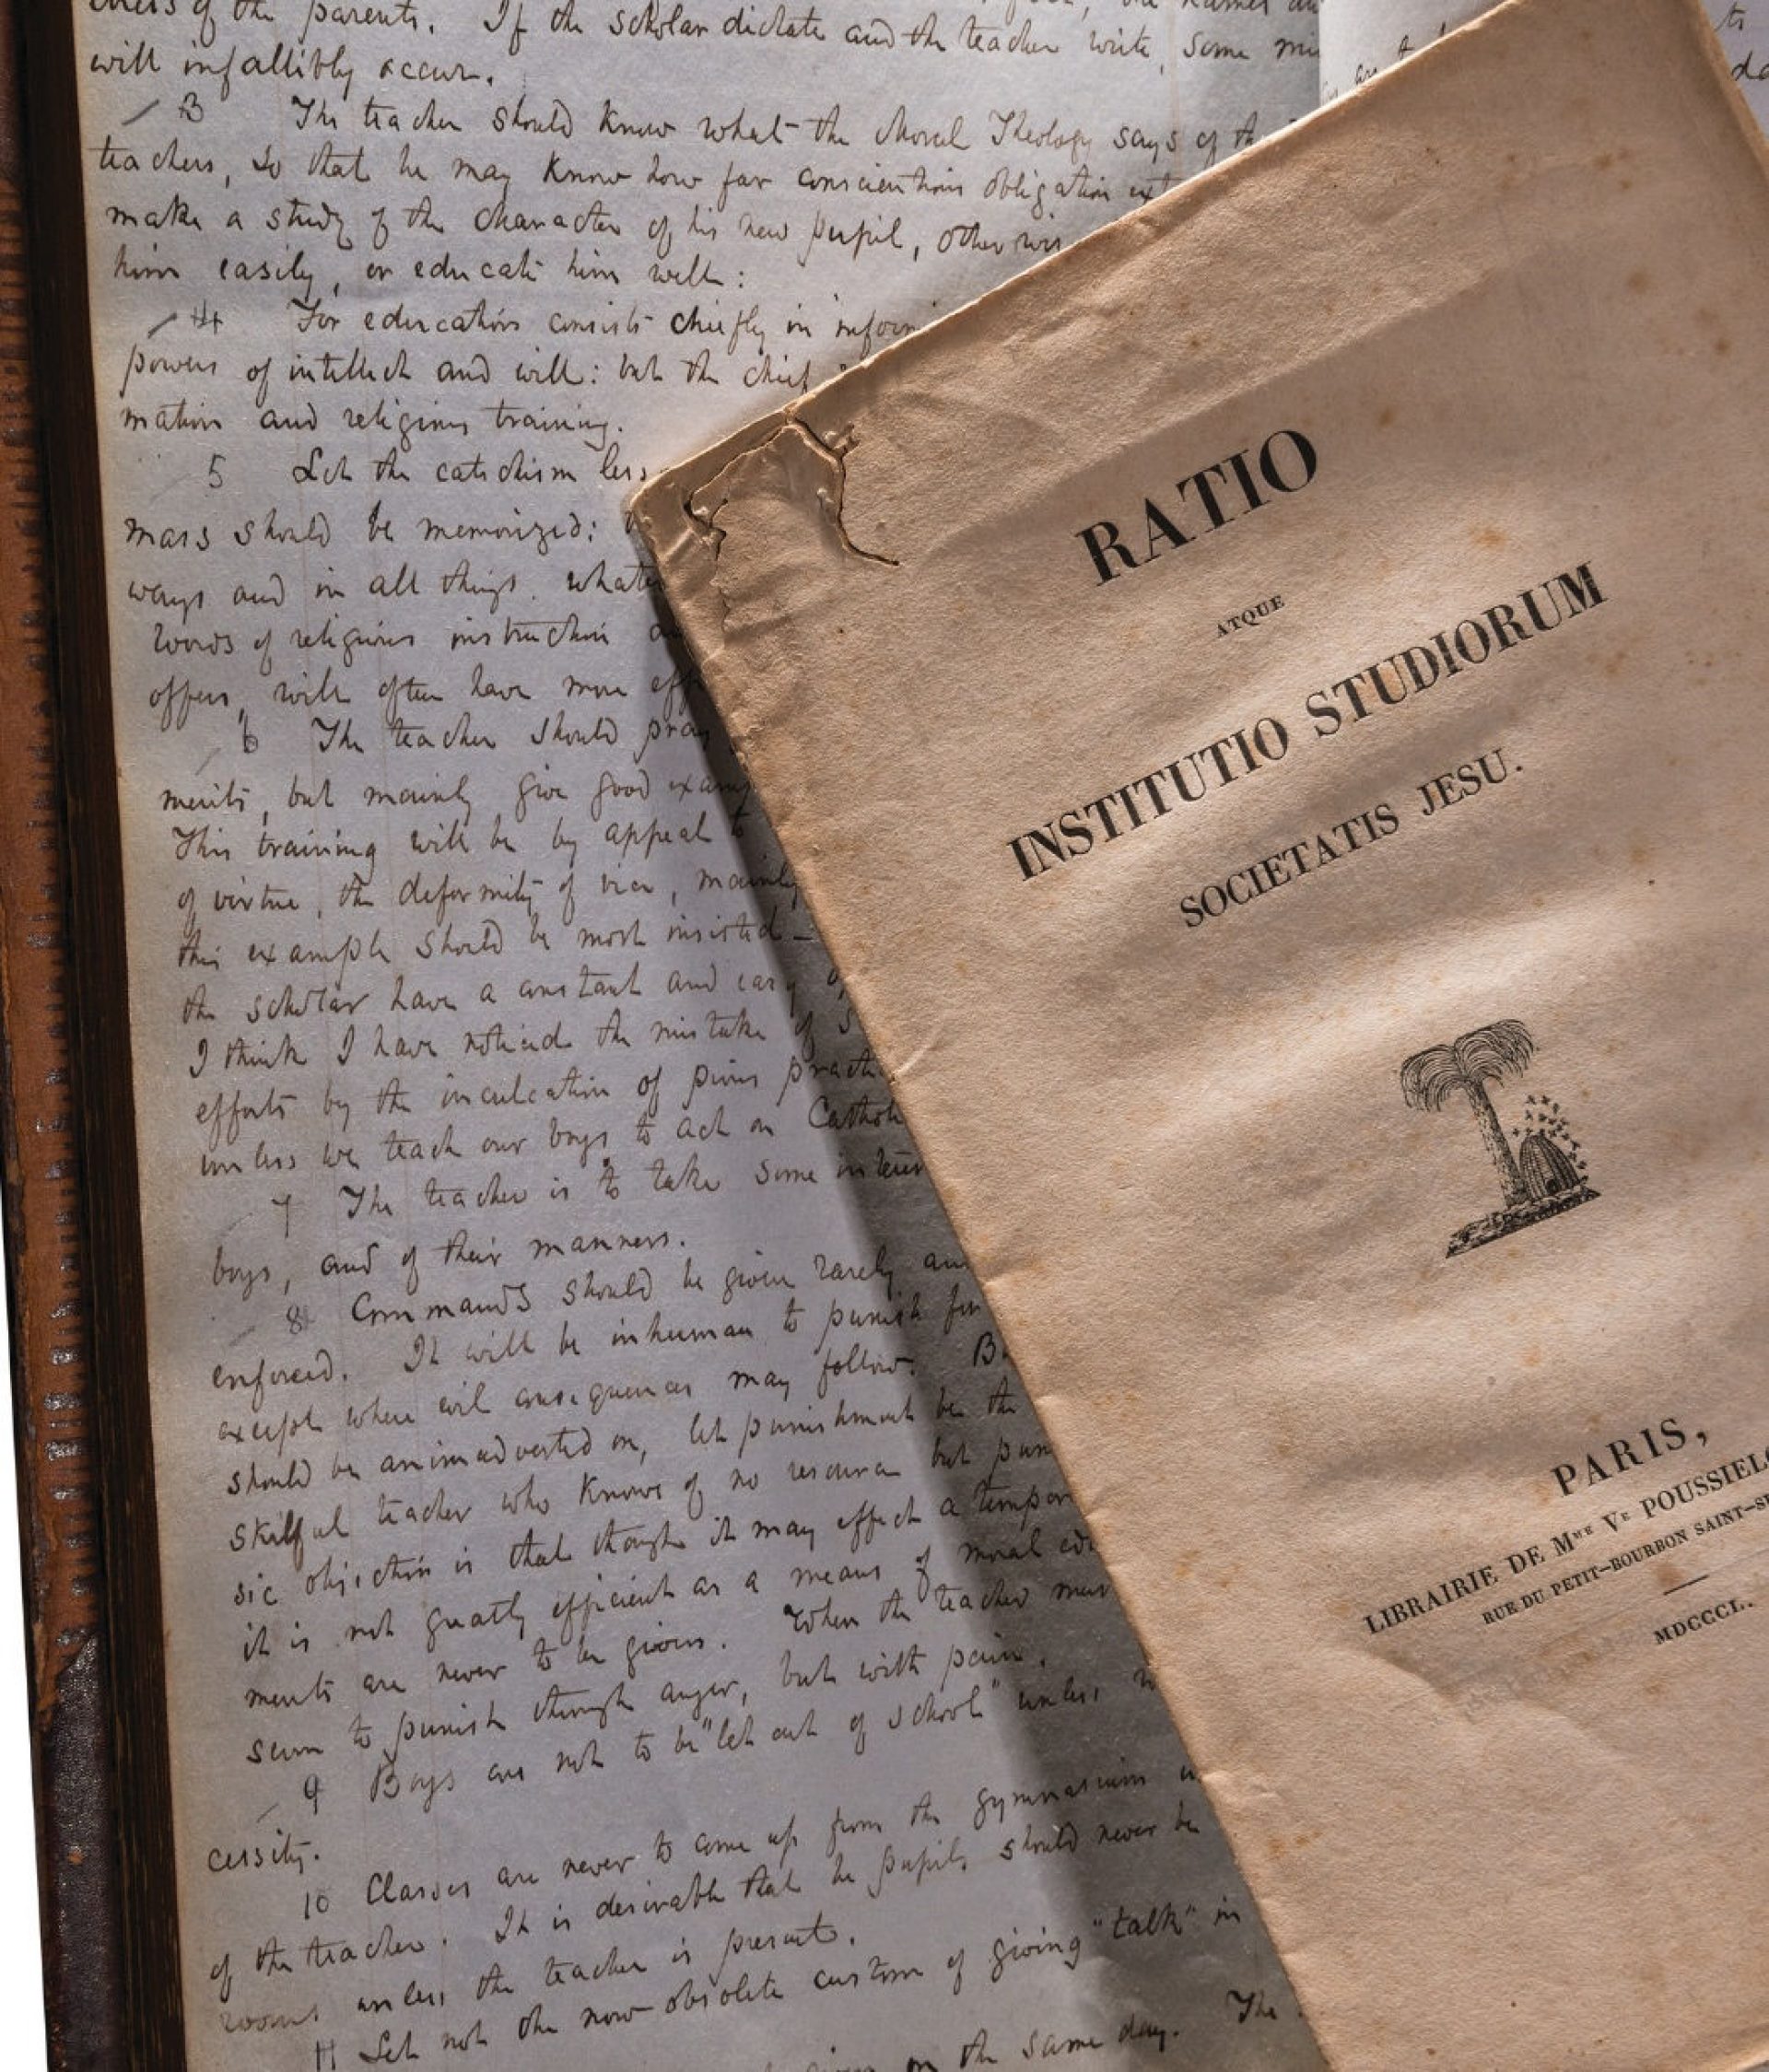 of the parents. If the scholar dictate and the teacher write, some
will infallibly occur.
3 The teacher should know what the Moral Theology says of
teachers, so that he may know how far conscientious obligation
make a study of the character of his new pupil,
him easily, or educate him well:
4 For education consists chiefly in
powers of intellect and will: but the chief
mation and religious training.
5 Let the catechism
mass should be memorized:
ways and in all things.
words of religious instruction
offers, will often have more
6 The teacher should pray
ments, but mainly give good
This training will be by appeal to
of virtue, the deformity of vice, mainly
this example should be most insisted
the scholar have a constant and easy
I think I have noticed the mistake of
efforts by the inculcation of pious
unless we teach our boys to act on
7 The teacher is to take some
boys, and of their manners.
8 Commands should be given rarely
enforced. It will be inhuman to punish for
except where evil consequences may follow.
should be animadverted on, let punishment be the
skilful teacher who knows of no resource but
sic objection is that though it may effect a
it is not greatly efficient as a means of moral
ments are never to be given. When the teacher
seem to punish through anger, but with pain.
9 Boys are not to be "let out of school" unless
cessity.
10 Classes are never to come up from the gymnasium
of the teacher. It is desirable that he pupils should never be
rooms unless the teacher is present.
11 Let not the now obsolete custom of giving "talk" in
on the same day. The
RATIO
ATQUE
INSTITUTIO STUDIORUM
SOCIETATIS JESU.
PARIS,
LIBRAIRIE DE Mme Ve
RUE DU PETIT-BOURBON
MDCCCL.